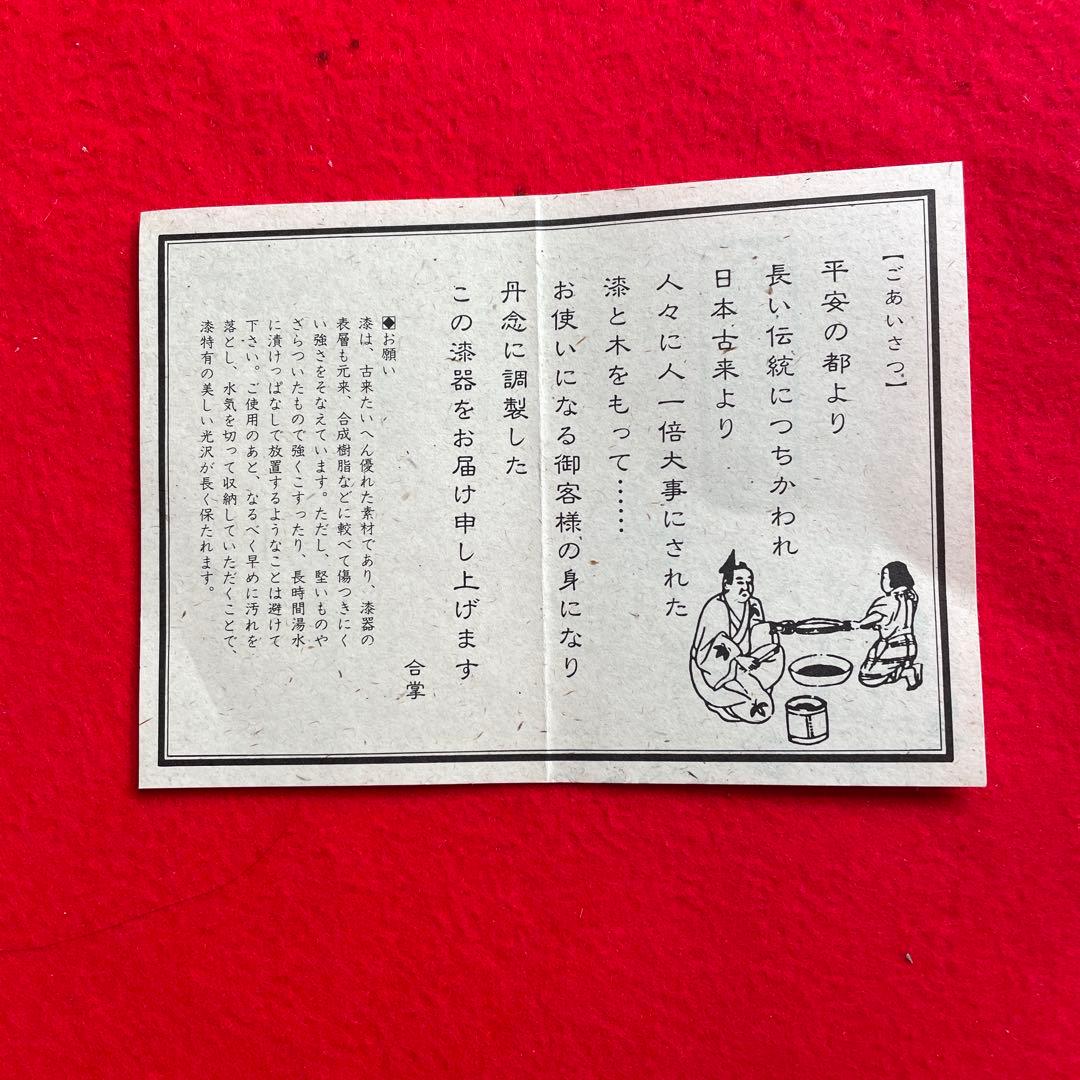 【ごあいさつ】
平安の都より
長い伝統につちかわれ
日本古来より
人々に人一倍大事にされた
漆と木をもって……
お使いになる御客様の身になり
丹念に調製した
この漆器をお届け申し上げます
合掌
◆お願い
漆は、古来たいへん優れた素材であり、漆器の
表層も元来、合成樹脂などに較べて傷つきにく
い強さをそなえています。ただし、堅いものや
ざらついたもので強くこすったり、長時間湯水
に漬けっぱなしで放置するようなことは避けて
下さい。ご使用のあと、なるべく早めに汚れを
落とし、水気を切って収納していただくことで、
漆特有の美しい光沢が長く保たれます。